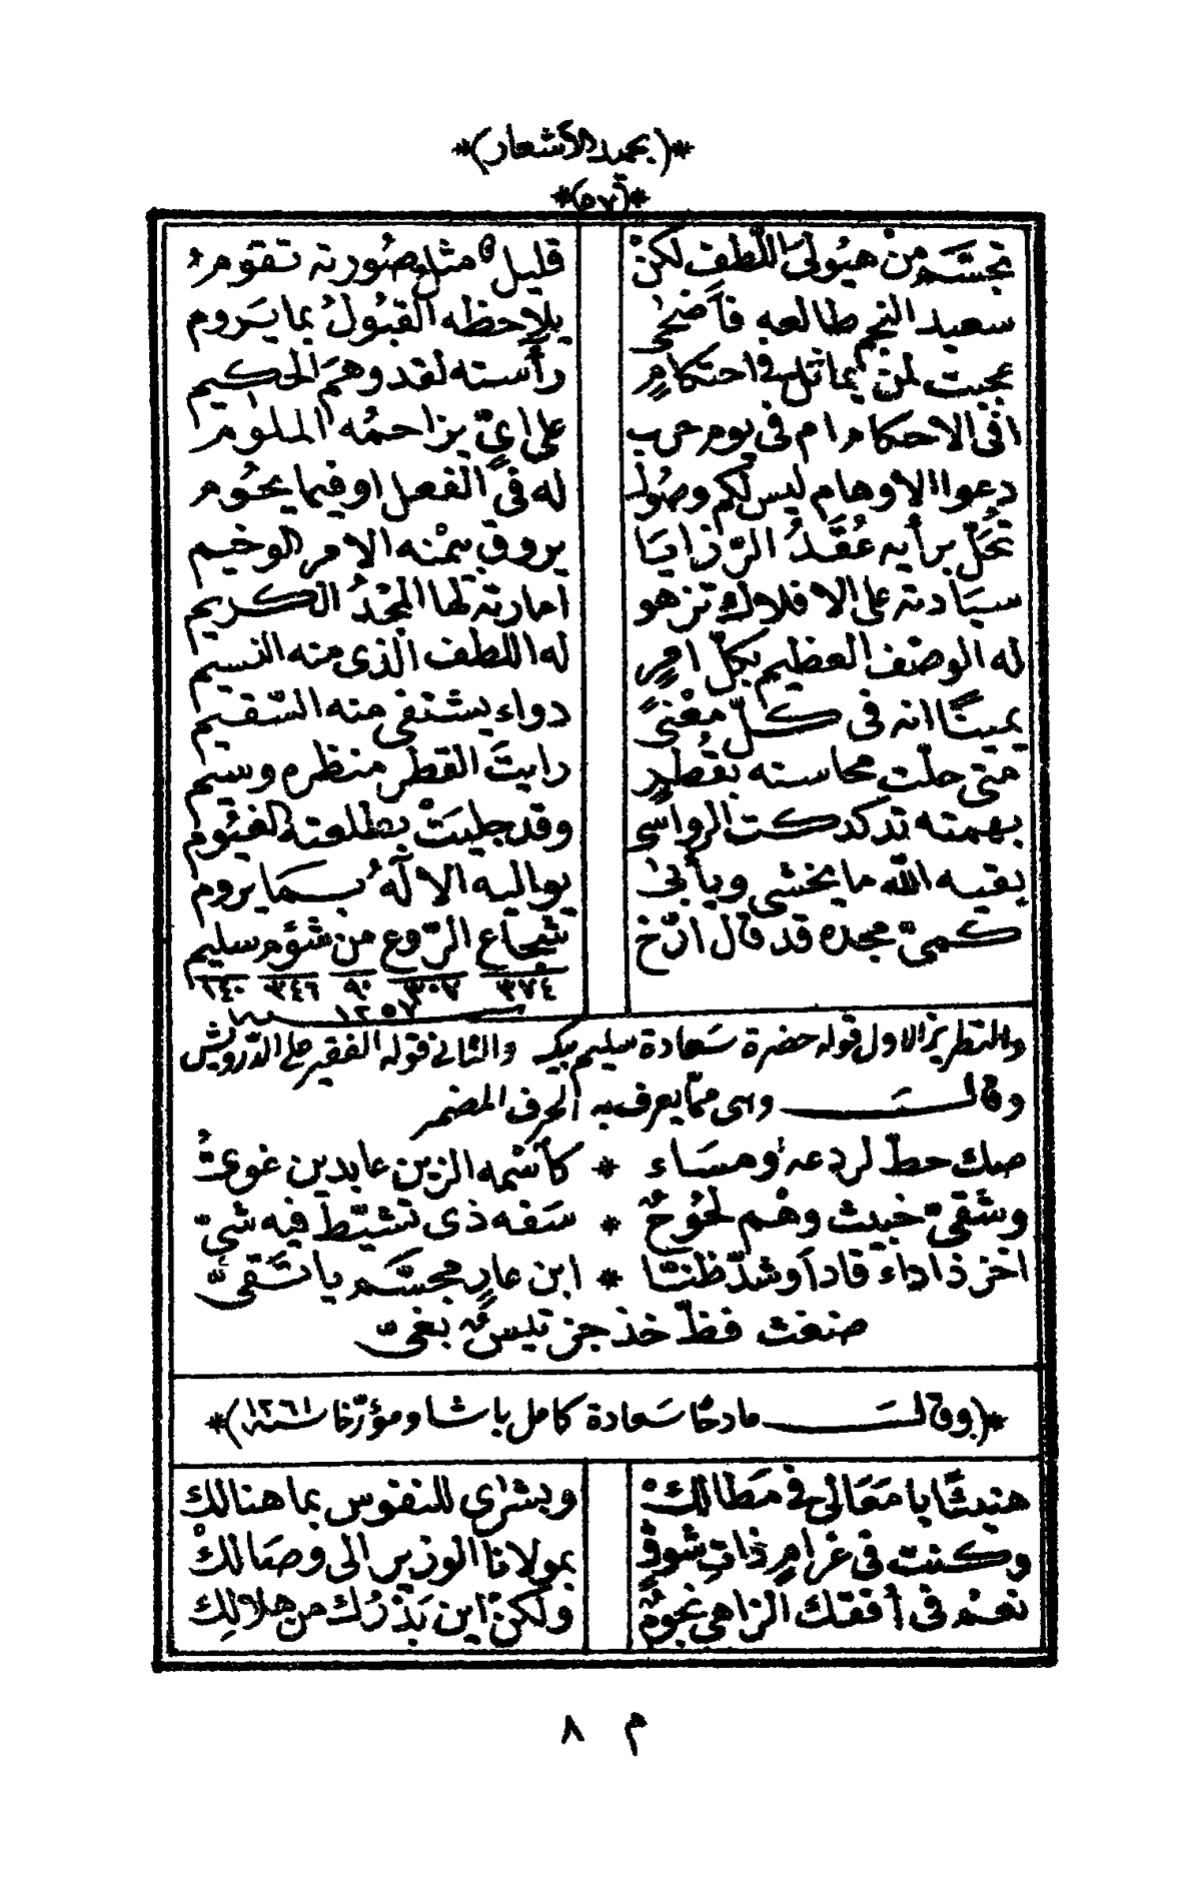 *(بحمد الأشعار)*
*(٥٧)*
تجسّم من هيُولَى اللّطف لكنْ قليل مثلُ صُورته تقومُ
سعيد النجم طالعه فأضحَى يلاحظه القبُولُ بما يَروم
عجبت لمنْ يماثل فى احتكامٍ رأسته لقد وهَمَ الحكيم
افى الاحكام رام فى يوم حرب على اىّ يزاحمُه الملوم
دعوا الاوهام ليس لكم وصُول له فى الفعل او فيما يحُوم
تحُلّ برأيه عُقَدُ الرّزايَا يروق بيمْنه الامر الوخيم
سيَادته على الافلاك تزهو امارته لها المجْدُ الكريم
له الوصْف العظيم بكلّ امرٍ له اللطف الّذى منه النسيم
يمينًا انه فى كلّ معْنىً دواء يشتفى منه السّقيم
متى حلّت محاسنه بقُطرٍ رايتَ القطر منظره وسيم
بهمته تدكدكت الرواسى وقد جليَتْ بطلعته الغيُوم
يقيه اللّه ما يخشى ويأبَى يواليه الالٓهُ بما يروم
كمىّ مجده قد قال ارّخ شجاع الرّوع من شؤم سليم
٣٧٤ ٣٠٧ ٩٠ ٣٤٦ ١٤٠
١٢٥٧ سنه
والتطريز الاول قوله حضرة سَعادة سليم بيك والثانى قوله الفقير على الدّرويش
وقالـــــت وهى ممّا يعرف به الحرف المضمر
صك حطّ لردعه ومسَاء * كأسْمه الزين عابدين غوىّ
وشَقىّ خبيث وهْم لحُوحٌ * سَفه ذى تشيّط فيه شىّ
اخز ذا داء قاد أو شدّ ظنّا * ابن عارٍ مجسَّم يا تَقىّ
صنعْت فظّ خذ جز تيسٌ بغىّ
*(وقالـــــت مادحًا سَعادة كامل باشا ومؤرّخا سنة ١٢٦١)*
هنيئًا يا مَعَالى فى مَطَالكْ وبشرٰى للنفوس بما هنالك
وكنت فى غرامٍ ذاتِ شوقٍ بمولانا الوزير الى وصَالكْ
نعم فى أفقك الزاهى نجومٌ ولكنْ اين بَدْرُك من هلالك
م ٨